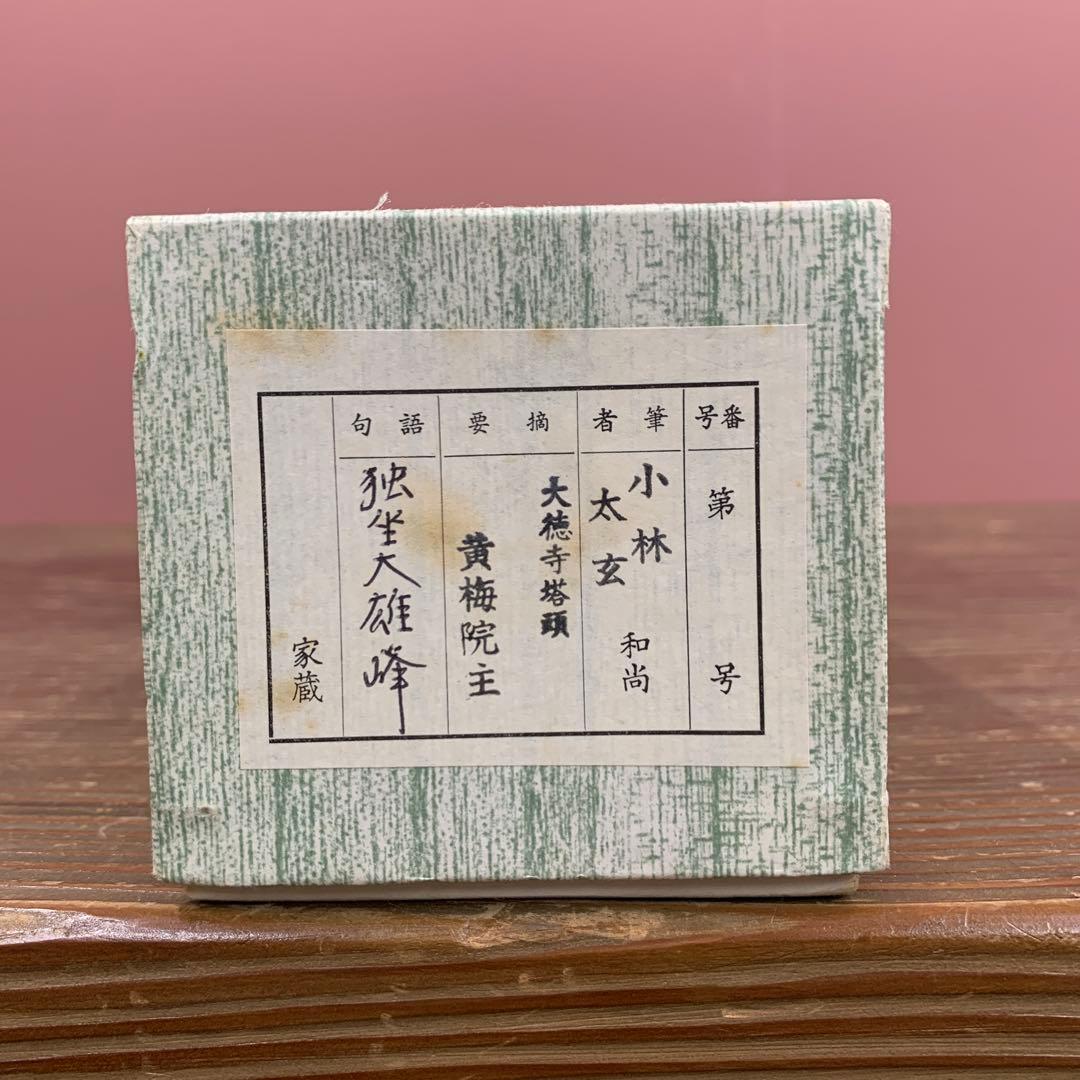 番号
第 号
筆者
小林
太玄
和尚
摘要
大徳寺塔頭
黄梅院主
語句
独坐大雄峰
家蔵